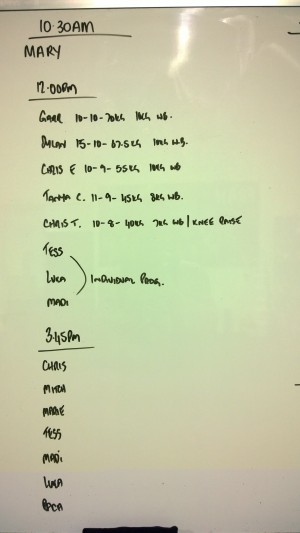 10.30AM
MARY
12.00PM
10-10-70KG 10KG WB.
DYLAN 15-10-67.5KG 10KG WB.
CHRIS F 10-9-55KG 10KG WB
C. 11-9-45KG 8KG WB.
CHRIS T. 10-8-40KG 7KG WB / KNEE RAISE
TESS
LUKA INDIVIDUAL PROG.
MADI
3.45PM
CHRIS
MITCH
MARIE
TESS
MADI
LUKA